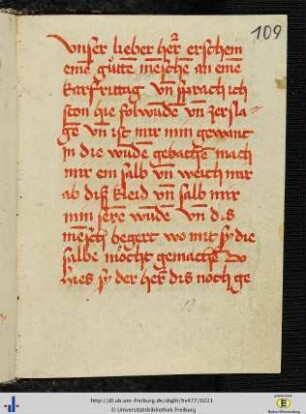 109
vnser lieber her erschein
eine gůtte mesche an eine
karfrittag vn̄ sprach ich
ston hie fol wūde vn̄ zersla-
ge vn̄ ist mir min gewant
jn die wūde gebache mach
mir ein salb vn̄ weich mir
ab diß kleid vn̄ salb mir
min sere wūde vn̄ dis
mesch begert wo mit sy die
salbe mŏcht gemache do
hies sy der her dis noch ge
http://dl.ub.uni-freiburg.de/diglit/hs477/0221
© Universitätsbibliothek Freiburg